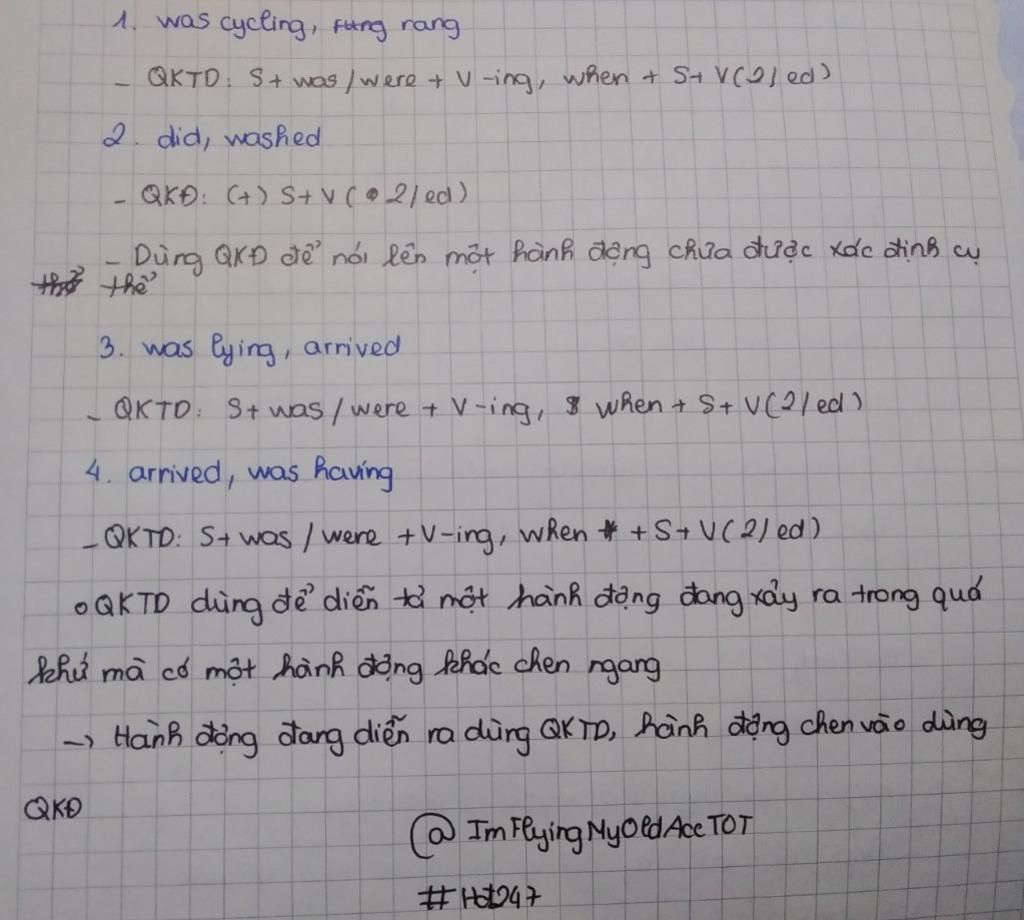 1. was cycling, rang
- QKTD: S+ was/were + V-ing, when + S+ V(2/ed)
2. did, washed
- QKĐ: (+) S+ V (2/ed)
- Dùng QKĐ để nói lên một hành động chưa được xác định cụ
thể
3. was lying, arrived
- QKTD: S+ was/were + V-ing, when + S+ V(2/ed)
4. arrived, was having
- QKTD: S+ was/were +V-ing, when + S+ V(2/ed)
o QKTD dùng để diễn tả một hành động đang xảy ra trong quá
khứ mà có một hành động khác chen ngang
→ Hành động đang diễn ra dùng QKTD, hành động chen vào dùng
QKĐ
@ImFlyingMyOldAccTOT
#Hd247